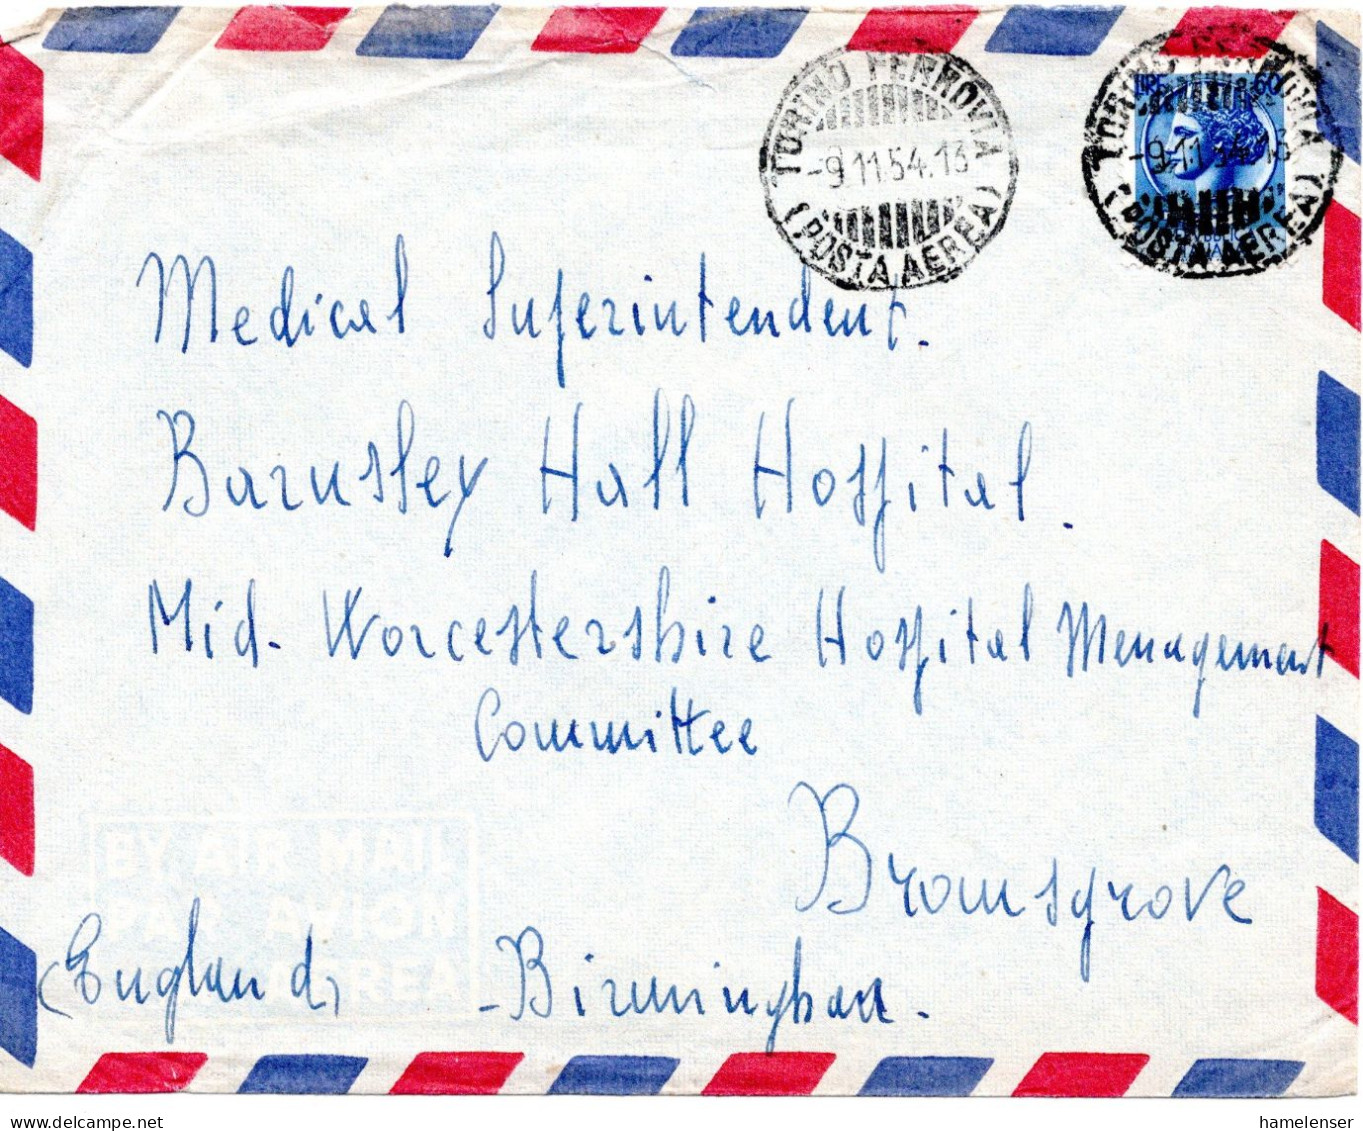 TORINO FERROVIA
-9.11.54.13
(POSTA AEREA)
TORINO FERROVIA
-9.11.54.13
(POSTA AEREA)
LIRE 60
Medical Superintendent.
Barnsley Hall Hospital.
Mid-Worcestershire Hospital Menagement
Committee
Bromsgrove
BY AIR MAIL
PAR AVION
AEREA
(England) -Birminghan.
www.delcampe.net
hamelenser